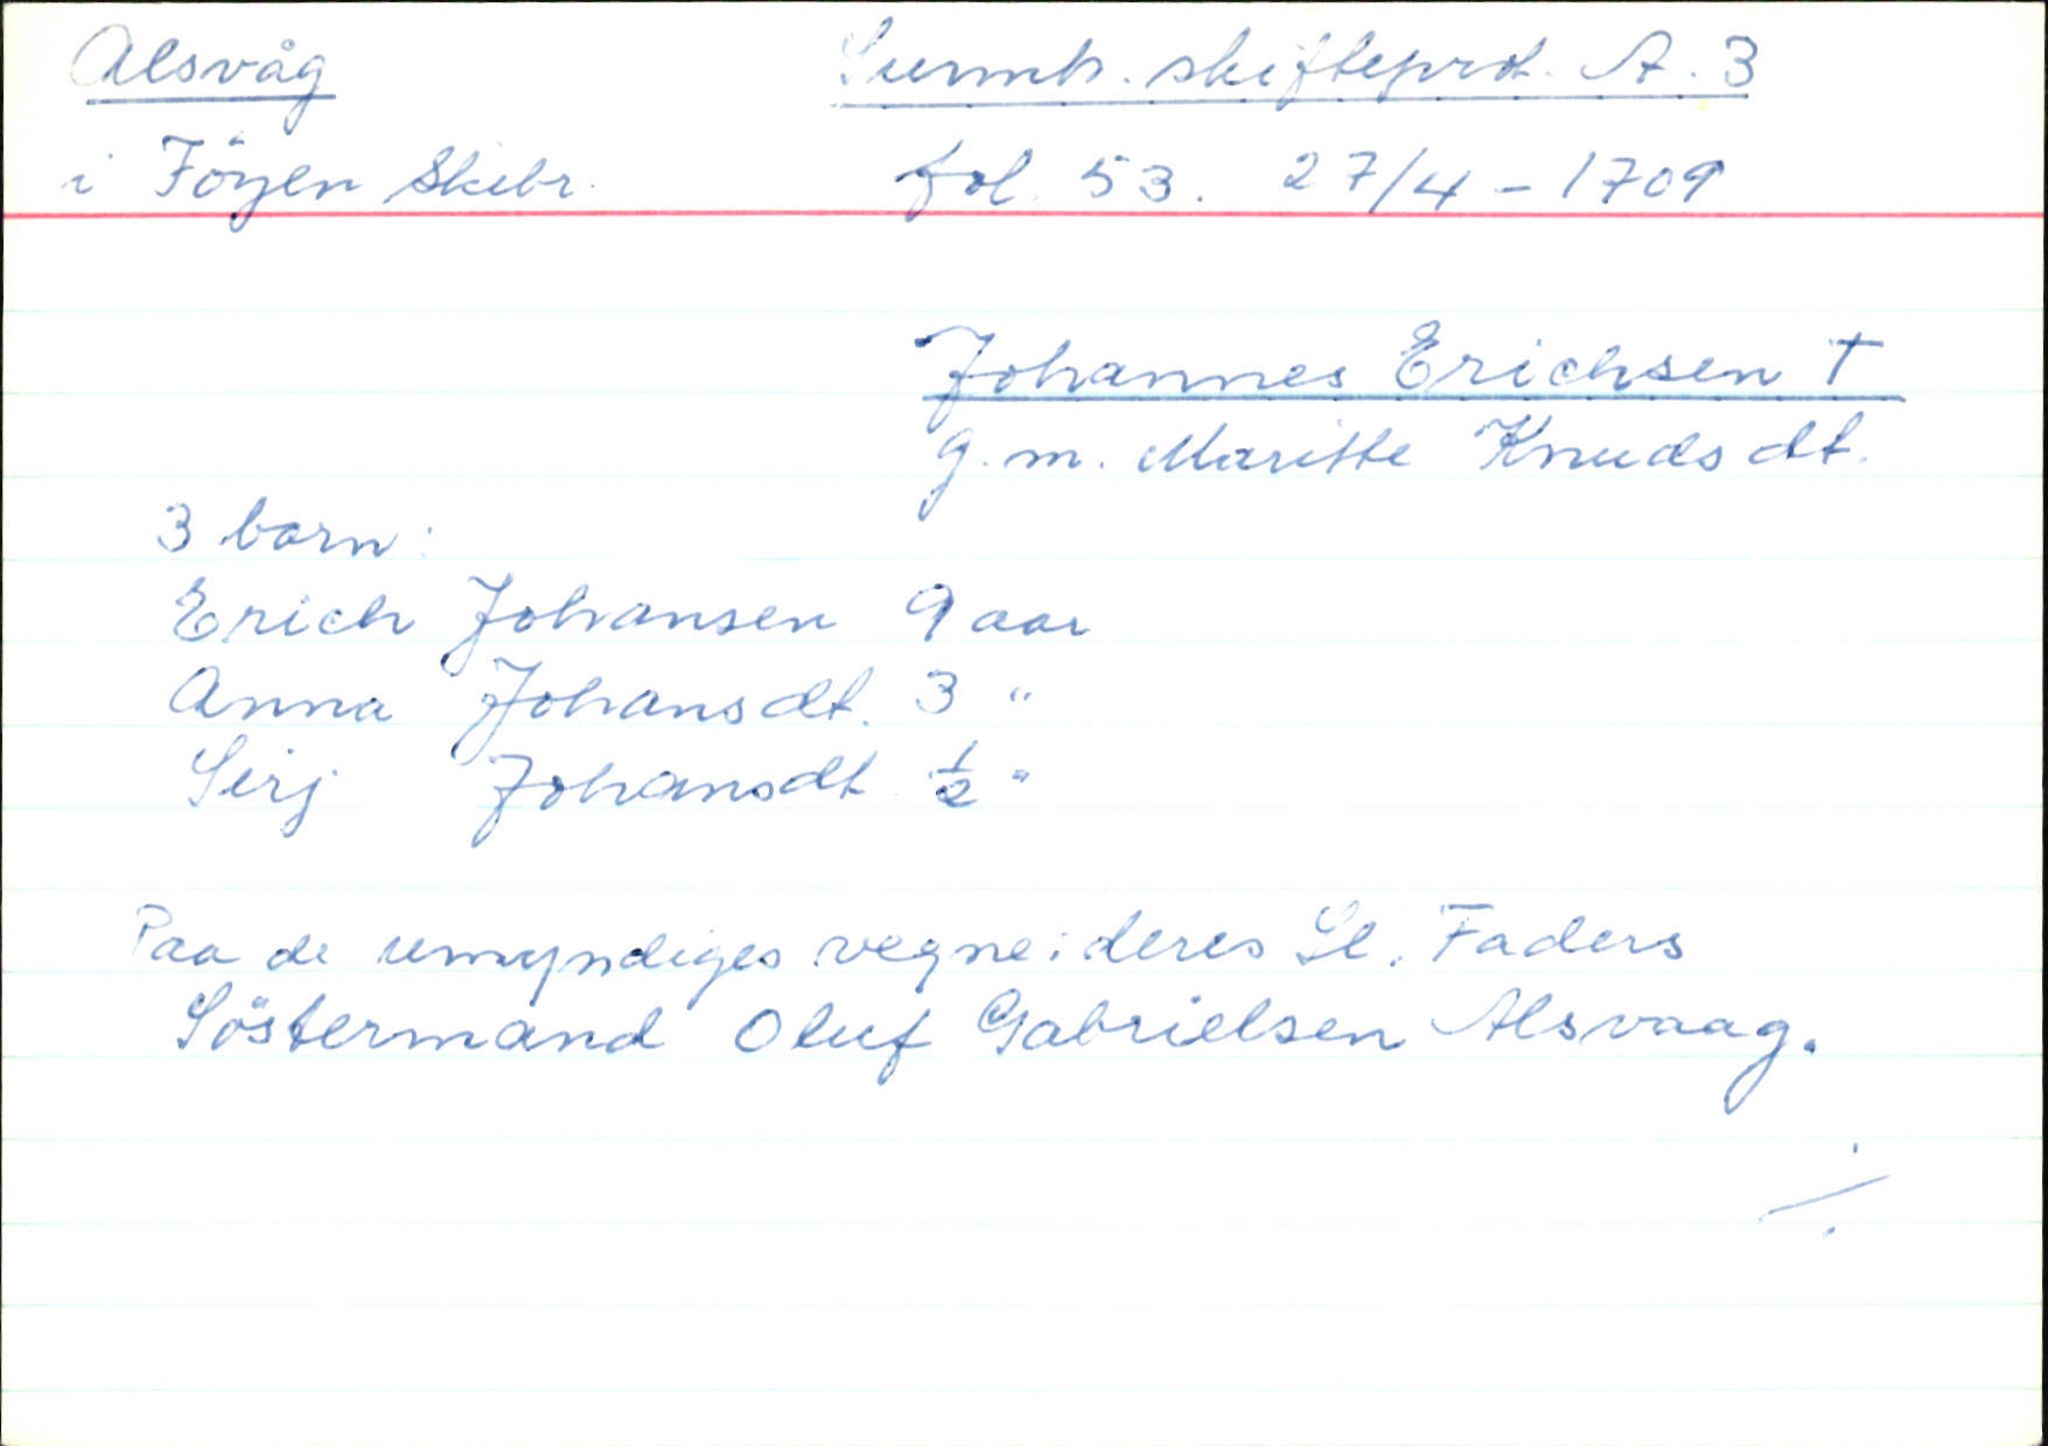 Alsvåg
Sunnh. skifteprot. A. 3
i Föyen Skibr.
fol. 53. 27/4 - 1709
Johannes Erichsen †
g. m. Maritte Knudsdt.
3 barn:
Erich Johansen 9 aar
Anna Johansdt. 3 "
Sirj Johansdt ½ "
Paa de umyndiges vegne: deres Sl. Faders
Söstermand Oluf Gabrielsen Alsvaag.